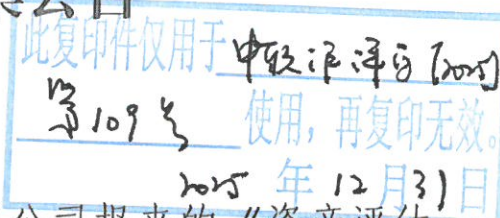 此复印件仅用于中联评字[2025]
第109号 使用，再复印无效。
2025 年 12 月 31 日
公司报来的《资产评估